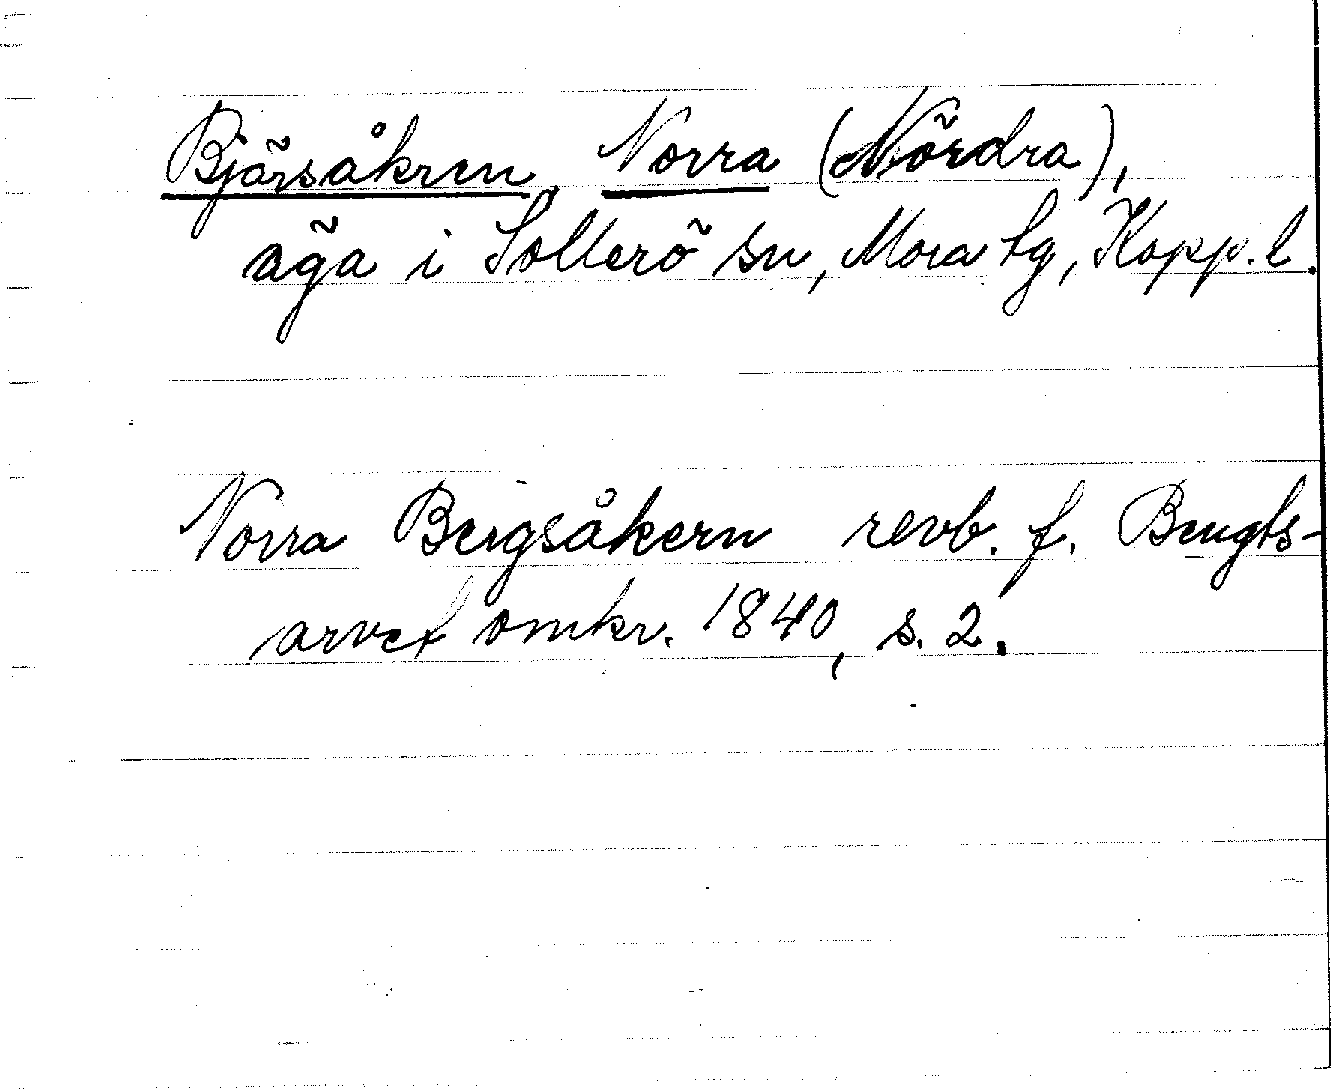 Bjärsåkren, Norra (Nördra),
äga i Sollerö sn, Mora tg, Kopp. l.
Norra Bergsåkern revb. f. Bengts-
arvet omkr. 1840, s. 2.